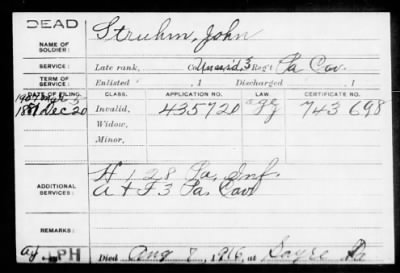 DEAD
Struhm, John
NAME OF SOLDIER:
SERVICE: Late rank, Co. Unasgd, 3 Reg't Pa Cav.
TERM OF SERVICE: Enlisted , 1 Discharged , 1
DATE OF FILING. CLASS. APPLICATION NO. LAW. CERTIFICATE NO.
3 age
Dec 20 Invalid, 435720 743 698
Widow,
Minor,
ADDITIONAL SERVICES: H 128 Pa. Inf.
A + F 3 Pa. Cav
REMARKS:
PH
Died Aug 8, 1916, at Sayre Pa